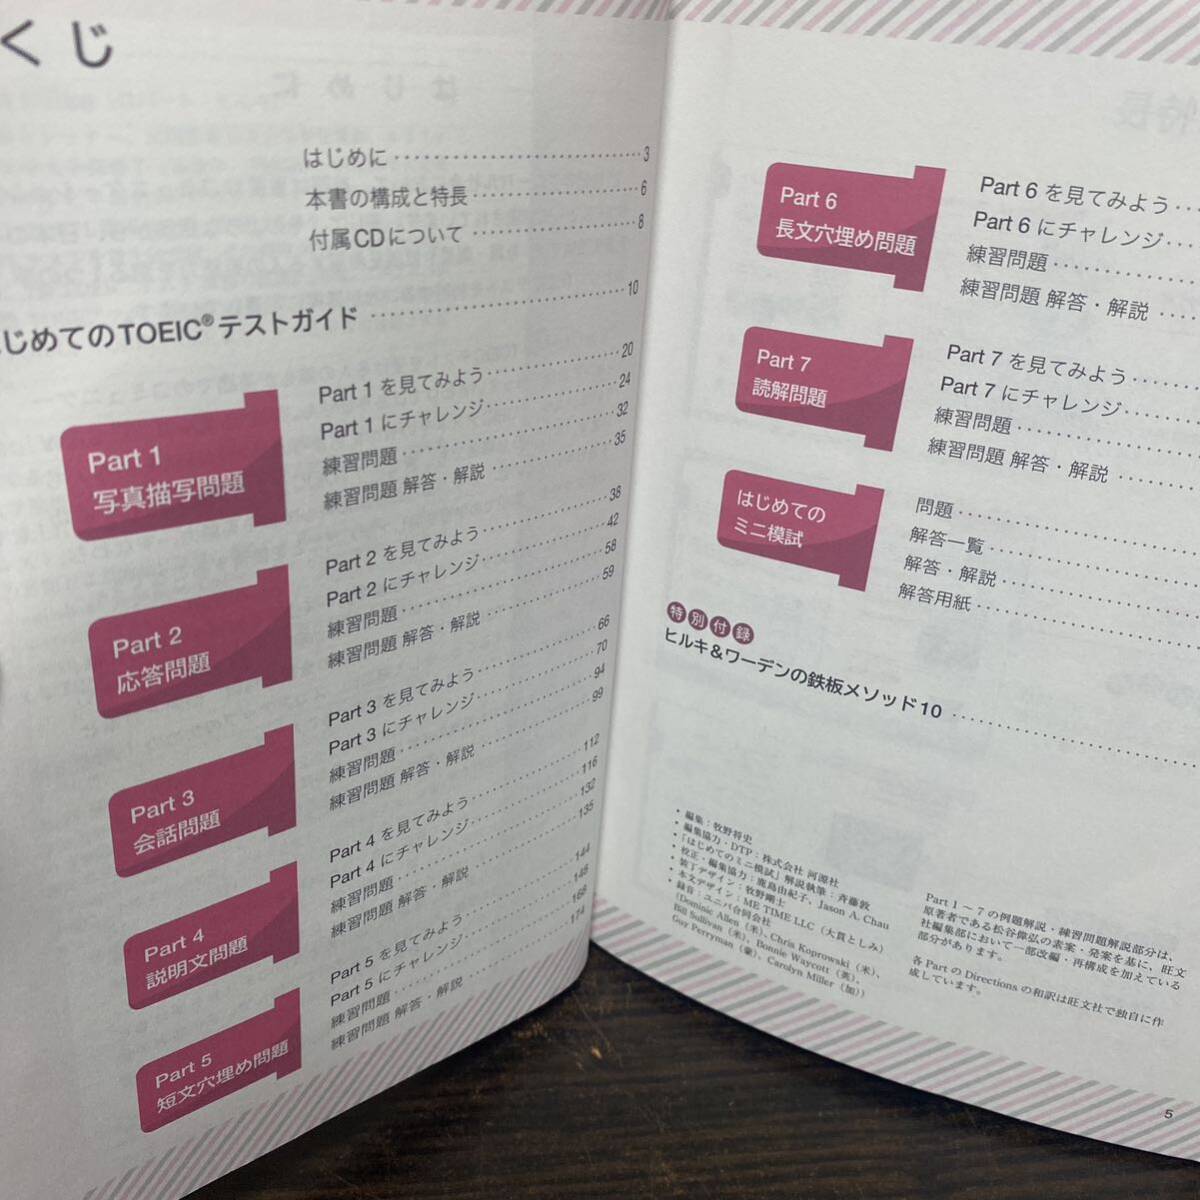 くじ
はじめに 3
本書の構成と特長 6
付属CDについて 8
じめてのTOEIC®テストガイド 10
Part 1
写真描写問題
Part 1 を見てみよう 20
Part 1 にチャレンジ 24
練習問題 32
練習問題 解答・解説 35
Part 2
応答問題
Part 2 を見てみよう 38
Part 2 にチャレンジ 42
練習問題 58
練習問題 解答・解説 59
Part 3
会話問題
Part 3 を見てみよう 66
Part 3 にチャレンジ 70
練習問題 94
練習問題 解答・解説 99
Part 4
説明文問題
Part 4 を見てみよう 112
Part 4 にチャレンジ 116
練習問題 132
練習問題 解答・解説 135
Part 5
短文穴埋め問題
Part 5 を見てみよう 144
Part 5 にチャレンジ 148
練習問題 168
練習問題 解答・解説 174
Part 6
長文穴埋め問題
Part 6 を見てみよう
Part 6 にチャレンジ
練習問題
練習問題 解答・解説
Part 7
読解問題
Part 7 を見てみよう
Part 7 にチャレンジ
練習問題
練習問題 解答・解説
はじめての
ミニ模試
問題
解答一覧
解答・解説
解答用紙
特別付録
ヒルキ＆ワーデンの鉄板メソッド10
・編集：牧野将史
・編集協力・DTP：株式会社 河源社
・「はじめてのミニ模試」解説執筆：斉藤敦
・校正・編集協力：鹿島由紀子、Jason A. Chau
・装丁デザイン：牧野剛士
・本文デザイン：ME TIME LLC（大貫としみ）
・録音：ユニバ合同会社
（Dominic Allen（米）、Chris Koprowski（米）、
Bill Sullivan（米）、Bonnie Waycott（英）、
Guy Perryman（豪）、Carolyn Miller（加））
Part 1～7の例題解説・練習問題解説部分は、
原著者である松谷偉弘の素案・発案を基に、旺文
社編集部において一部改編・再構成を加えている
部分があります。
各PartのDirectionsの和訳は旺文社で独自に作
成しています。
5